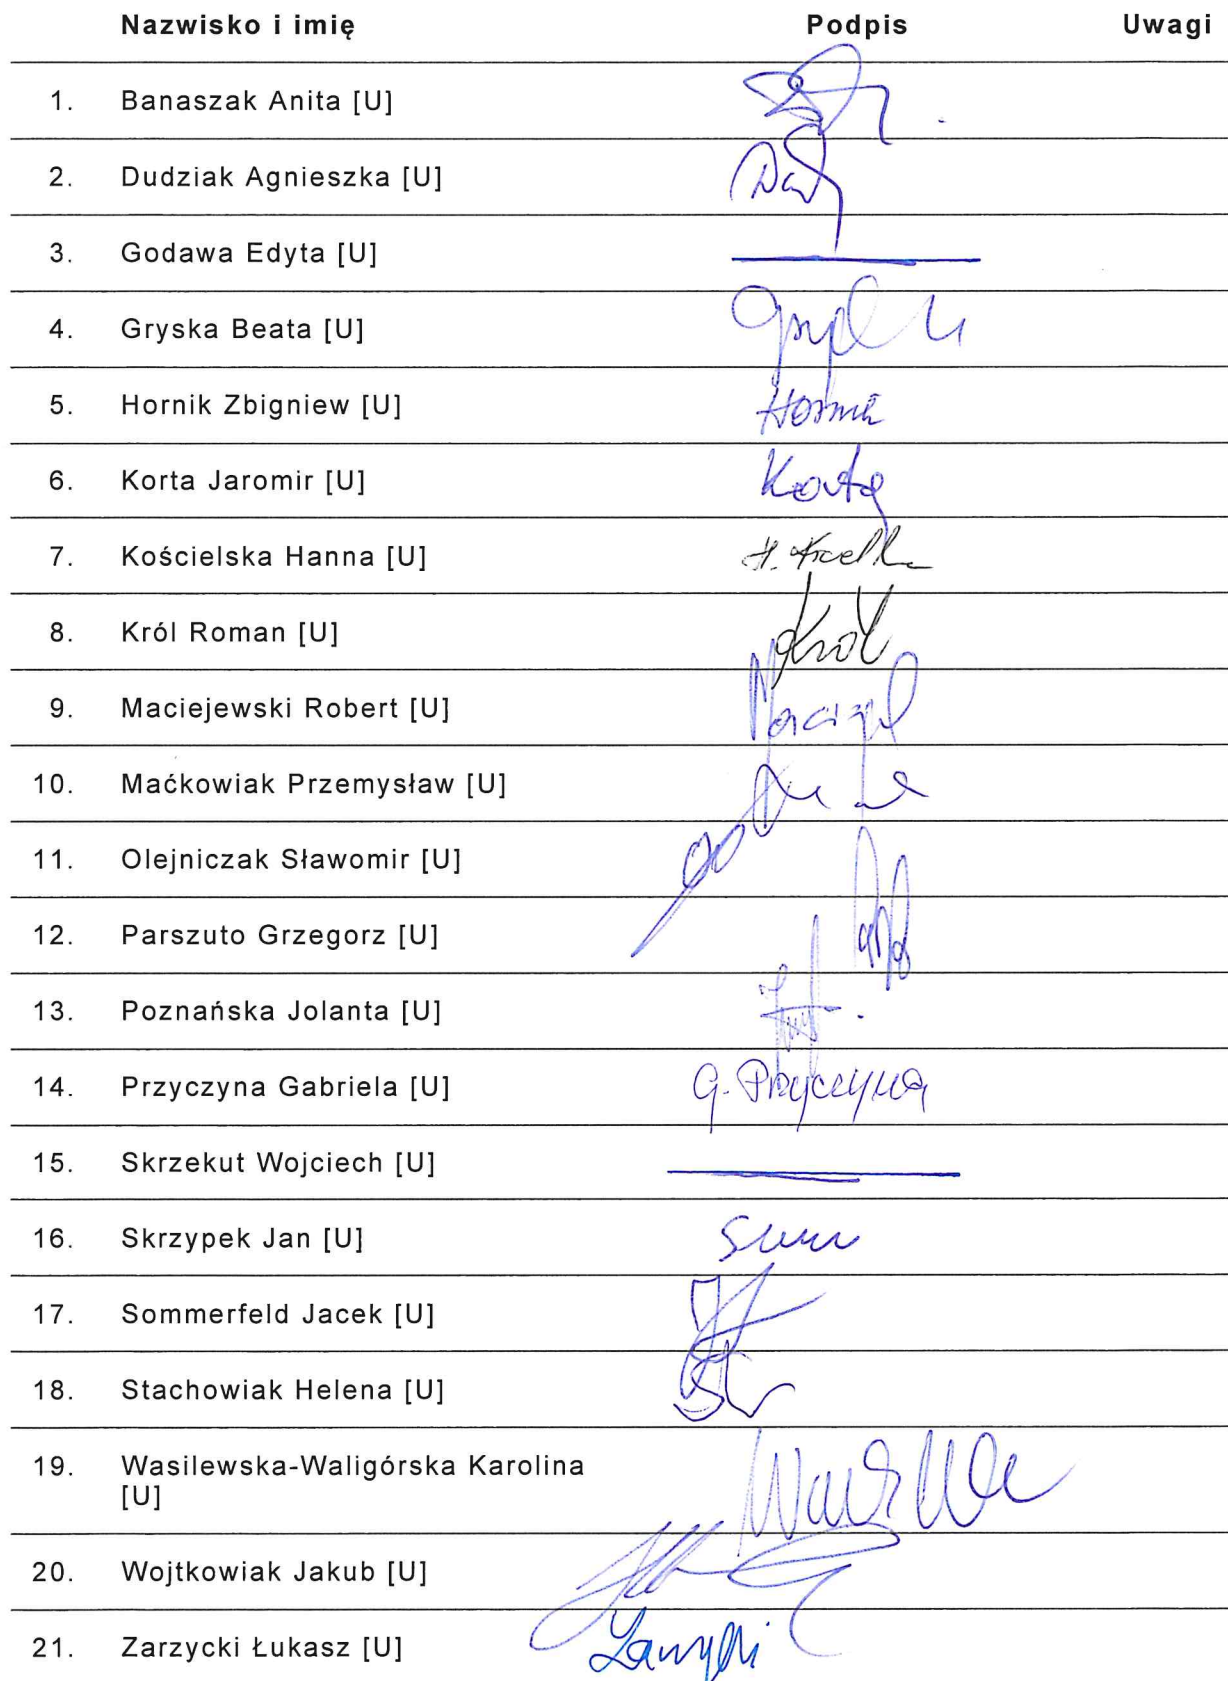 Nazwisko i imię Podpis Uwagi
1. Banaszak Anita [U]
2. Dudziak Agnieszka [U]
3. Godawa Edyta [U]
4. Gryska Beata [U]
5. Hornik Zbigniew [U] Hornik
6. Korta Jaromir [U] Korta
7. Kościelska Hanna [U] H.
8. Król Roman [U] Król
9. Maciejewski Robert [U]
10. Maćkowiak Przemysław [U]
11. Olejniczak Sławomir [U]
12. Parszuto Grzegorz [U]
13. Poznańska Jolanta [U]
14. Przyczyna Gabriela [U] G. Przyczyna
15. Skrzekut Wojciech [U]
16. Skrzypek Jan [U]
17. Sommerfeld Jacek [U]
18. Stachowiak Helena [U]
19. Wasilewska-Waligórska Karolina
[U]
20. Wojtkowiak Jakub [U]
21. Zarzycki Łukasz [U]